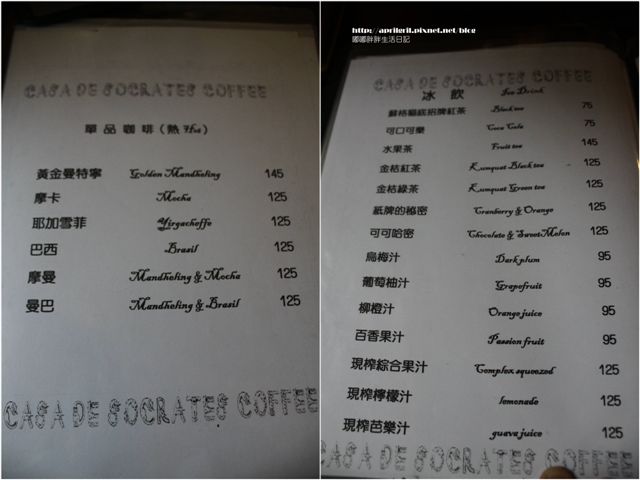 CASA DE SOCRATES COFFEE
單品咖啡(熱 Hot)
黃金曼特寧 Golden Mandheling 145
摩卡 Mocha 125
耶加雪菲 Yirgacheffe 125
巴西 Brasil 125
摩曼 Mandheling & Mocha 125
曼巴 Mandheling & Brasil 125
CASA DE SOCRATES COFFEE
http://aprilgril.pixnet.net/blog
嘟嘟胖胖生活日記
CASA DE SOCRATES COFFEE
冰飲 Ice Drink
蘇格貓底招牌紅茶 Black tea 75
可口可樂 Coca Cola 75
水果茶 Fruit tea 145
金桔紅茶 Kumquat Black tea 125
金桔綠茶 Kumquat Green tea 125
紙牌的秘密 Cranberry & Orange 125
可可哈密 Chocolate & Sweet Melon 125
烏梅汁 Dark plum 95
葡萄柚汁 Grapofruit 95
柳橙汁 Orange juice 95
百香果汁 Passion fruit 95
現榨綜合果汁 Complex squeezed 125
現榨檸檬汁 lemonade 125
現榨芭樂汁 guava juice 125
CASA DE SOCRATES COFFEE